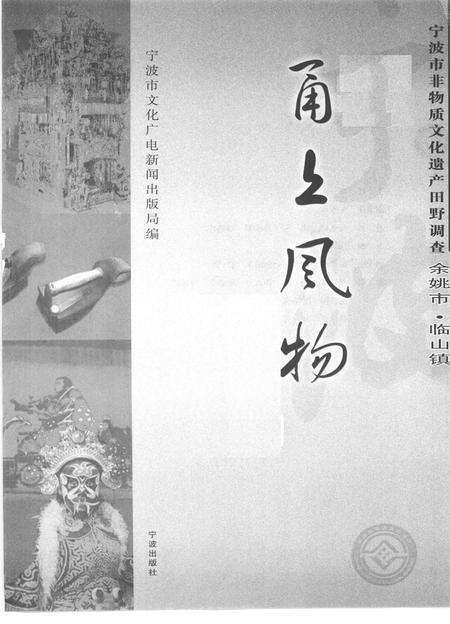 宁波市非物质文化遗产田野调查
余姚市·临山镇
甬上风物
宁波市文化广电新闻出版局编
宁波出版社